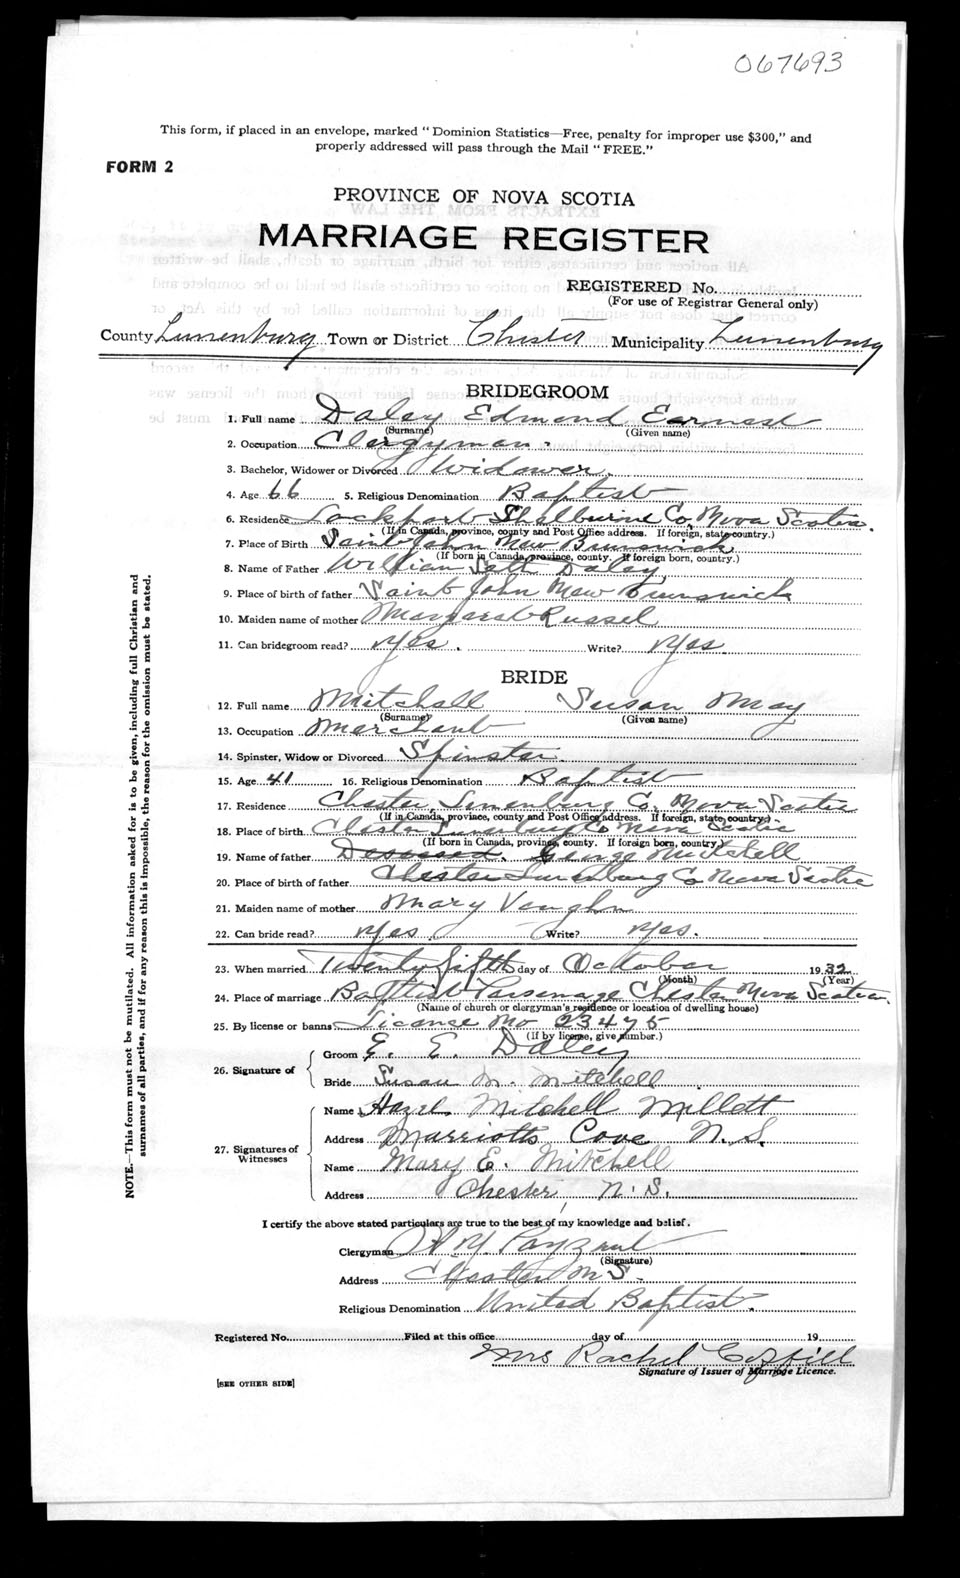 067693
This form, if placed in an envelope, marked "Dominion Statistics—Free, penalty for improper use $300," and
properly addressed will pass through the Mail "FREE."
FORM 2
PROVINCE OF NOVA SCOTIA
MARRIAGE REGISTER
REGISTERED No.
(For use of Registrar General only)
County Lunenburg Town or District Chester Municipality Lunenburg
BRIDEGROOM
1. Full name Daley Edmond Earnest
(Surname) (Given name)
2. Occupation Clergyman.
3. Bachelor, Widower or Divorced Widower.
4. Age 66 5. Religious Denomination Baptist
6. Residence Lockport Shelburne Co, Nova Scotia.
(If in Canada, province, county and Post Office address. If foreign, state country.)
7. Place of Birth Saint John New Brunswick
(If born in Canada, province, county. If foreign born, country.)
8. Name of Father William Daley
9. Place of birth of father Saint John New Brunswick
10. Maiden name of mother Margaret Russel
11. Can bridegroom read? Yes. Write? Yes.
BRIDE
12. Full name Mitchell Susan May
(Surname) (Given name)
13. Occupation Merchant
14. Spinster, Widow or Divorced Spinster.
15. Age 41 16. Religious Denomination Baptist
17. Residence Chester, Lunenburg Co, Nova Scotia
(If in Canada, province, county and Post Office address. If foreign, state country.)
18. Place of birth Chester Lunenburg Co Nova Scotia
(If born in Canada, province, county. If foreign born, country.)
19. Name of father Deceased. George Mitchell
20. Place of birth of father Chester Lunenburg Co Nova Scotia
21. Maiden name of mother Mary Vaughn
22. Can bride read? Yes. Write? Yes.
23. When married Twenty fifth day of October 1932
(Month) (Year)
24. Place of marriage Baptist Parsonage Chester Nova Scotia.
(Name of church or clergyman's residence or location of dwelling house)
25. By license or banns Licence No 23475
(If by license, give number.)
26. Signature of Groom E. E. Daley
Bride Susan M. Mitchell
27. Signatures of Witnesses Name Hazel Mitchell Millett
Address Marriotts Cove N.S.
Name Mary E. Mitchell
Address Chester, N.S.
I certify the above stated particulars are true to the best of my knowledge and belief.
Clergyman
(Signature)
Address Chester N S.
Religious Denomination United Baptist.
Registered No. Filed at this office day of 19
Mrs Rachel
Signature of Issuer of Marriage Licence.
[SEE OTHER SIDE]
NOTE.—This form must not be mutilated. All information asked for is to be given, including full Christian and
surnames of all parties, and if for any reason this is impossible, the reason for the omission must be stated.